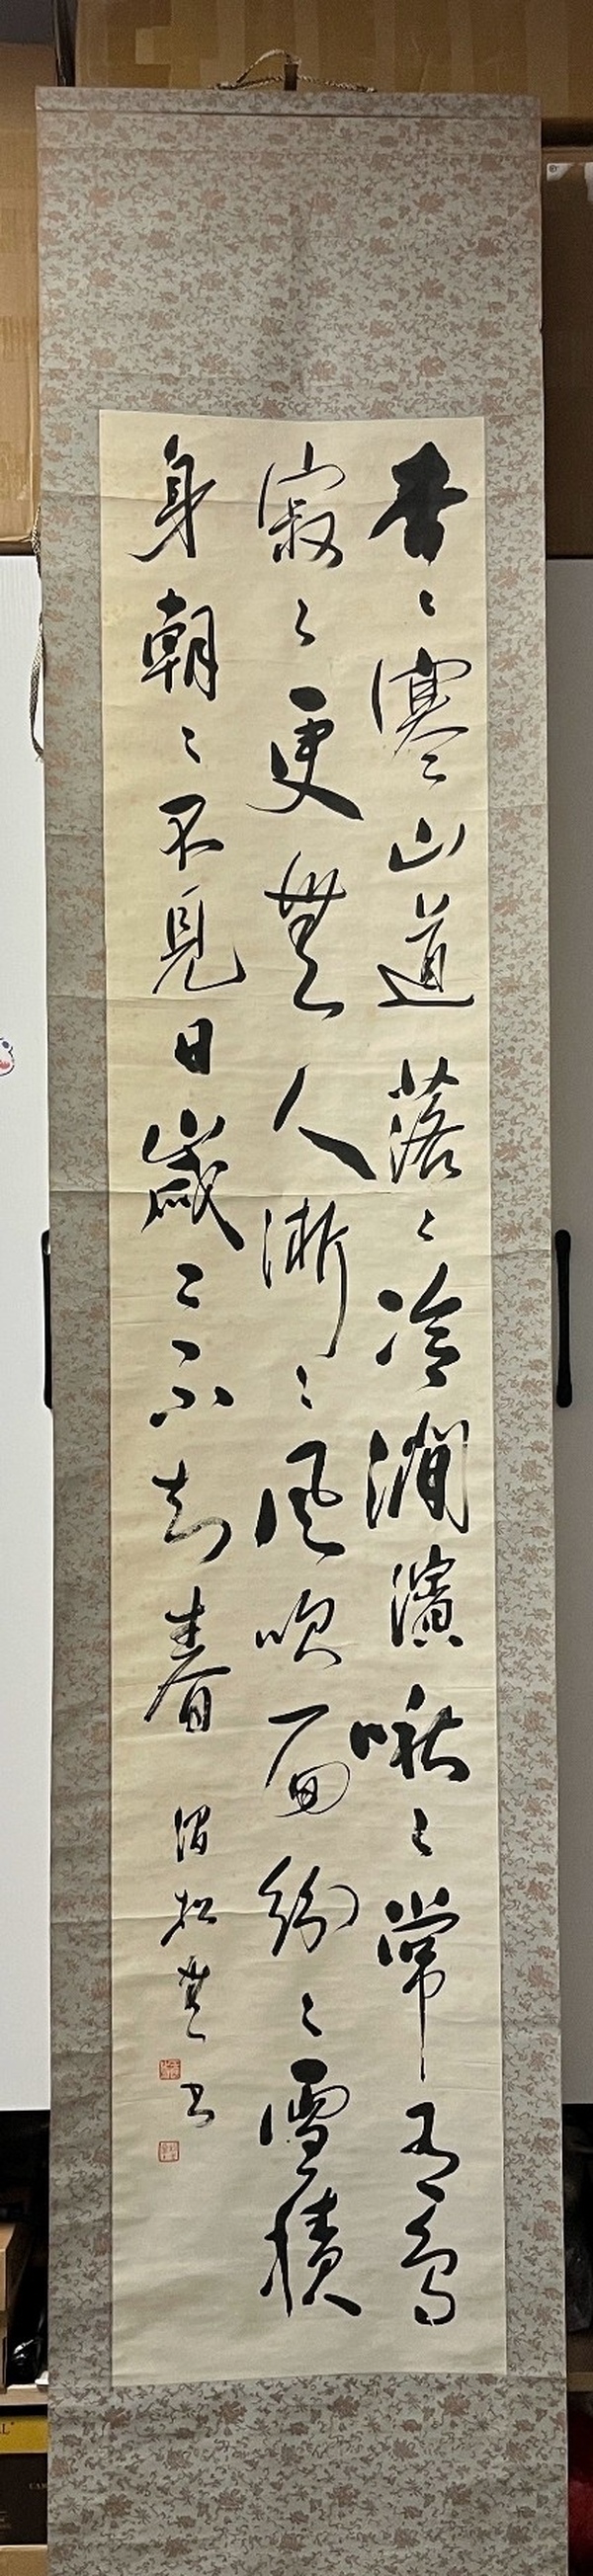 杳〻寒山道落〻冷澗濱啾〻常有鳥
寂〻更無人淅〻風吹面紛〻雪積
身朝〻不見日歳〻不知春
松
書